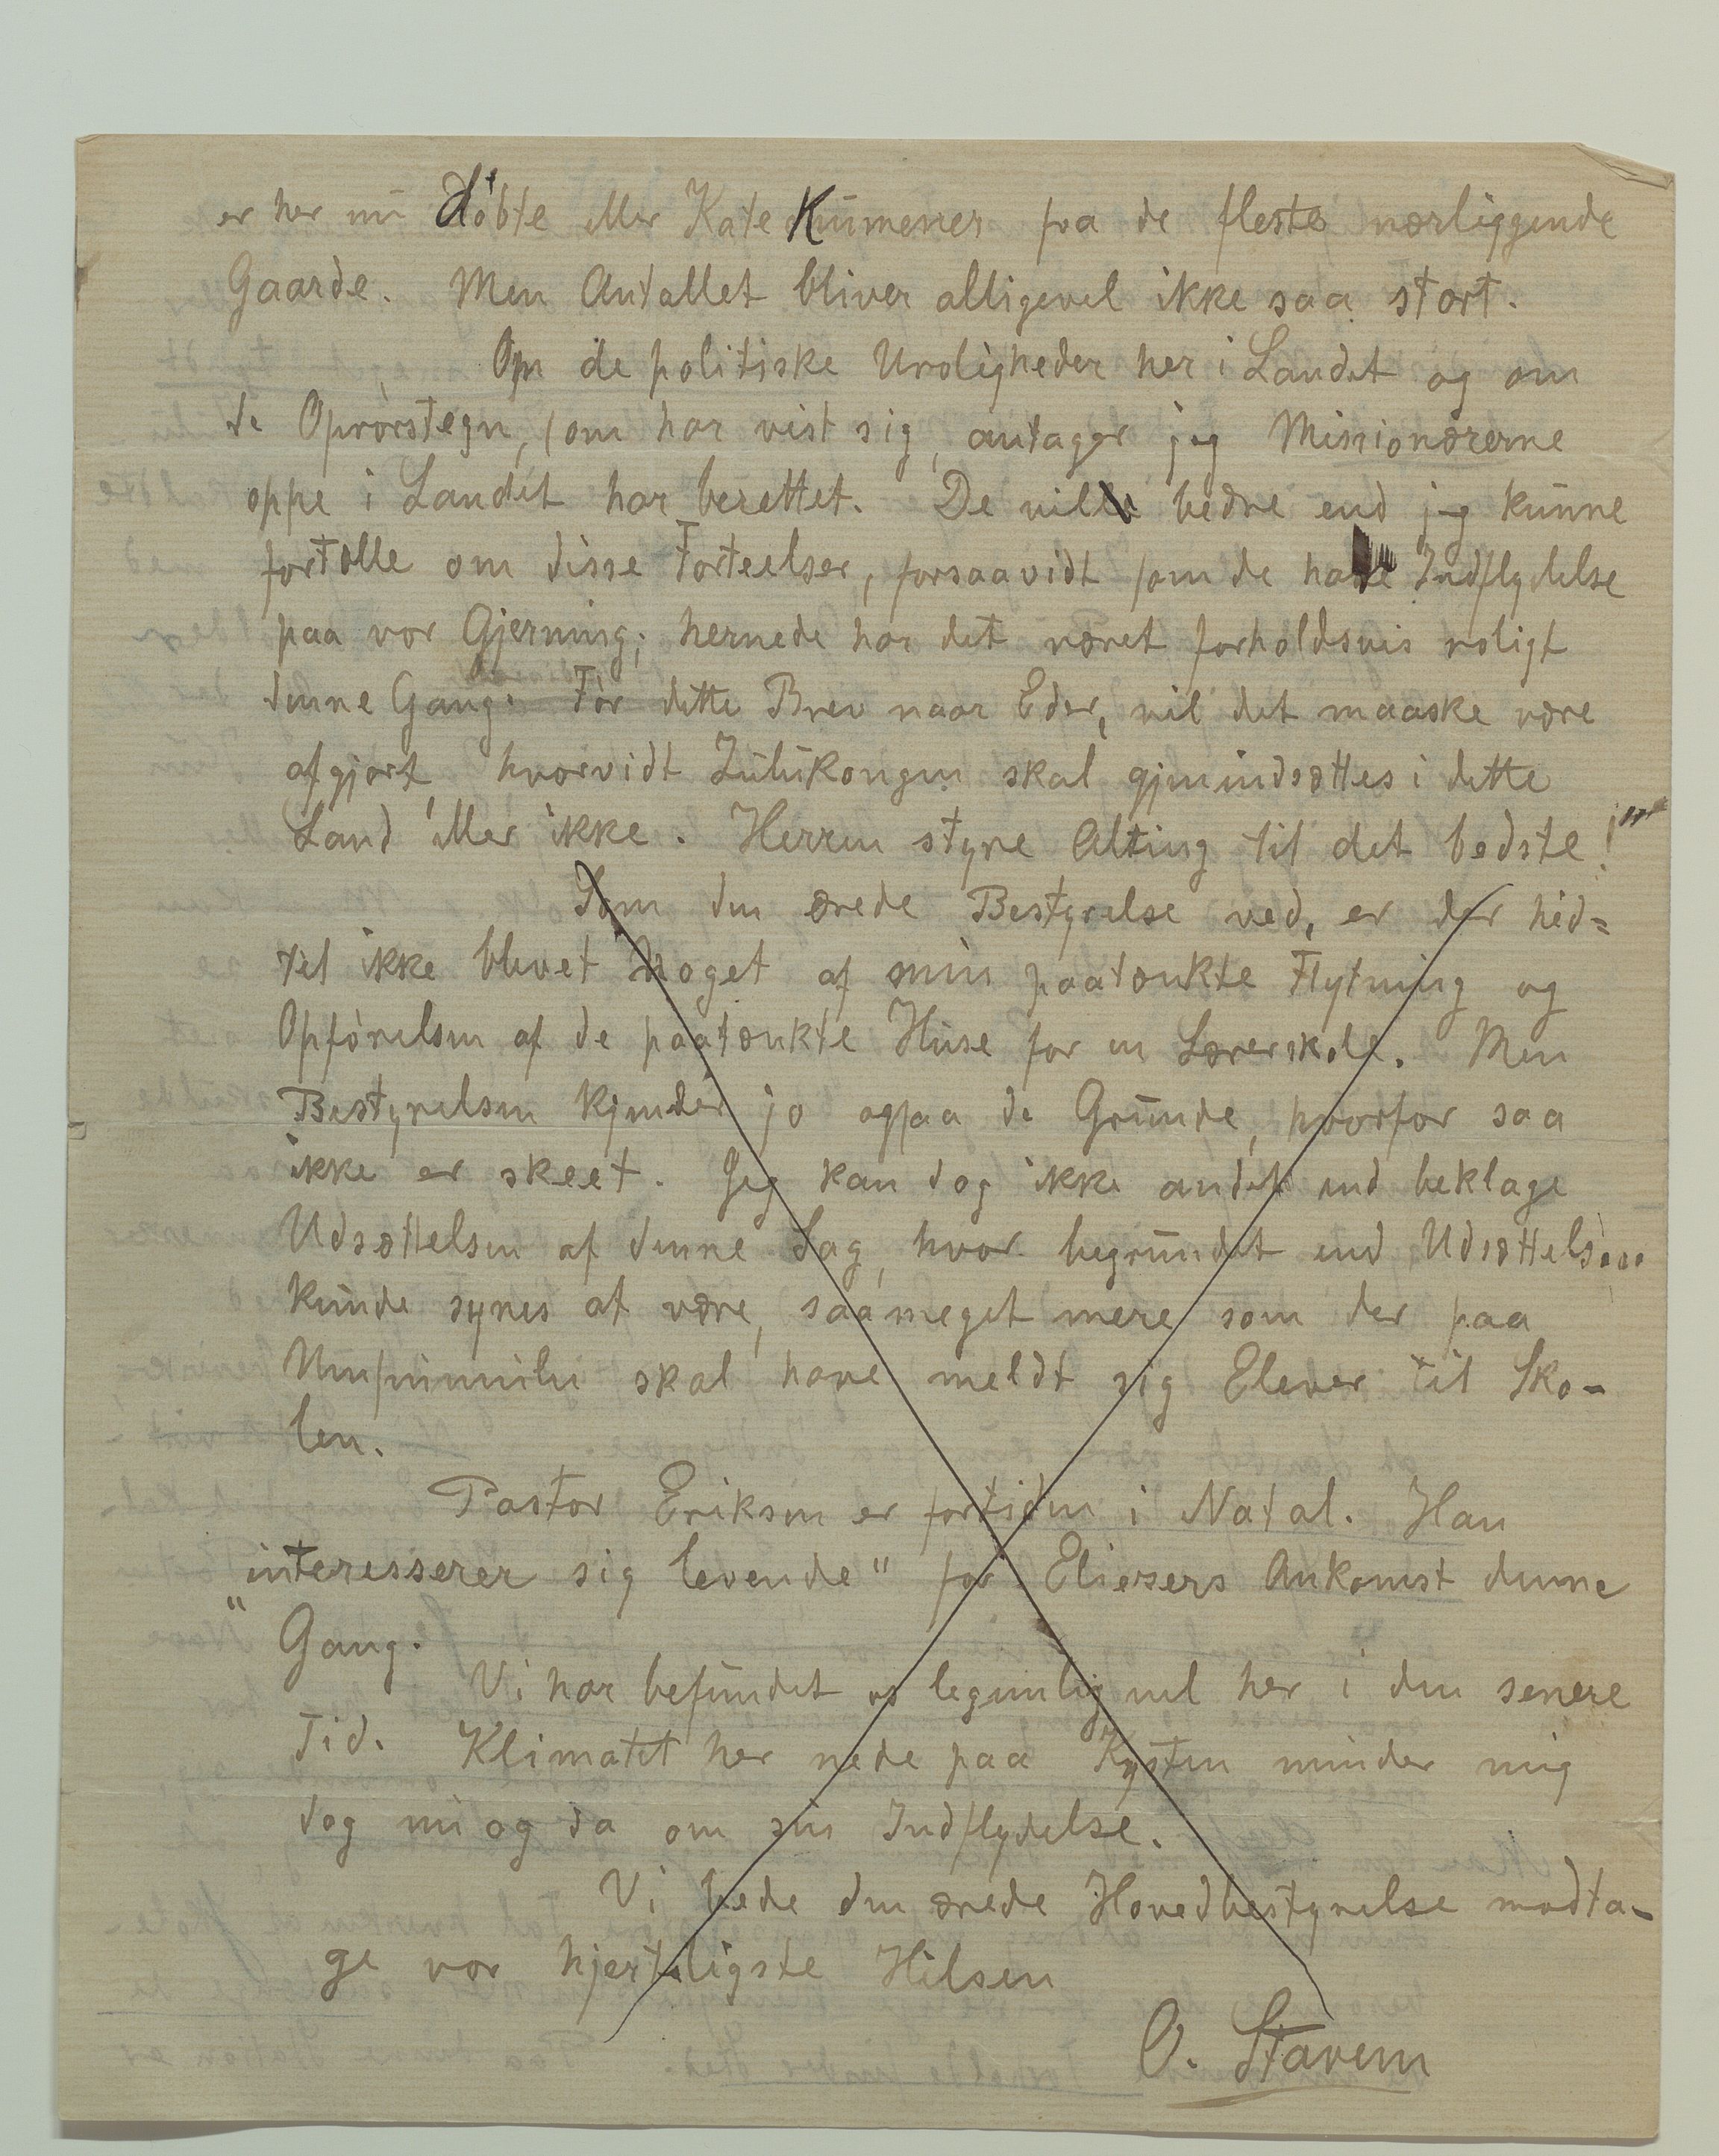 er her nu Døbte eller Katekumener fra de fleste nærliggende
Gaarde. Men Antallet bliver alligevel ikke saa stort.
Om de politiske Uroligheder her i Landet og om
de Oprørstegn, som har vist sig, antager jeg Missionærerne
oppe i Landet har berettet. De vil bedre end jeg kunne
fortælle om disse Forteelser, forsaavidt som de have Indflydelse
paa vor Gjerning; hernede har det været forholdsvis roligt
denne Gang. Før dette Brev naar Eder, vil det maaske være
afgjort, hvorvidt Zulukongen skal gjenindsættes i dette
Land eller ikke. Herren styre Alting til det bedste!"
Som den ærede Bestyrelse ved, er der hid=
til ikke blevet noget af min paatænkte Flytning og
Opførelsen af de paatænkte Huse for en Lærerskole. Men
Bestyrelsen kjender jo ogsaa de Grunde, hvorfor saa
ikke er skeet. Jeg kan dog ikke andet end beklage
Udsættelsen af denne Sag, hvor begrundet end Udsættelsen
kunde synes at være, saameget mere som der paa
Umpumulu skal have meldt sig Elever til Sko-
len.
Pastor Eriksen er fortiden i Natal. Han
"interesserer sig levende" for Eliesers Ankomst denne
Gang.
Vi har befundet os legemlig vel her i den senere
Tid. Klimatet her nede paa Kysten minder mig
dog nu og da om sin Indflydelse.
Vi bede den ærede Hovedbestyrelse modta-
ge vor hjerteligste Hilsen
O. Stavem